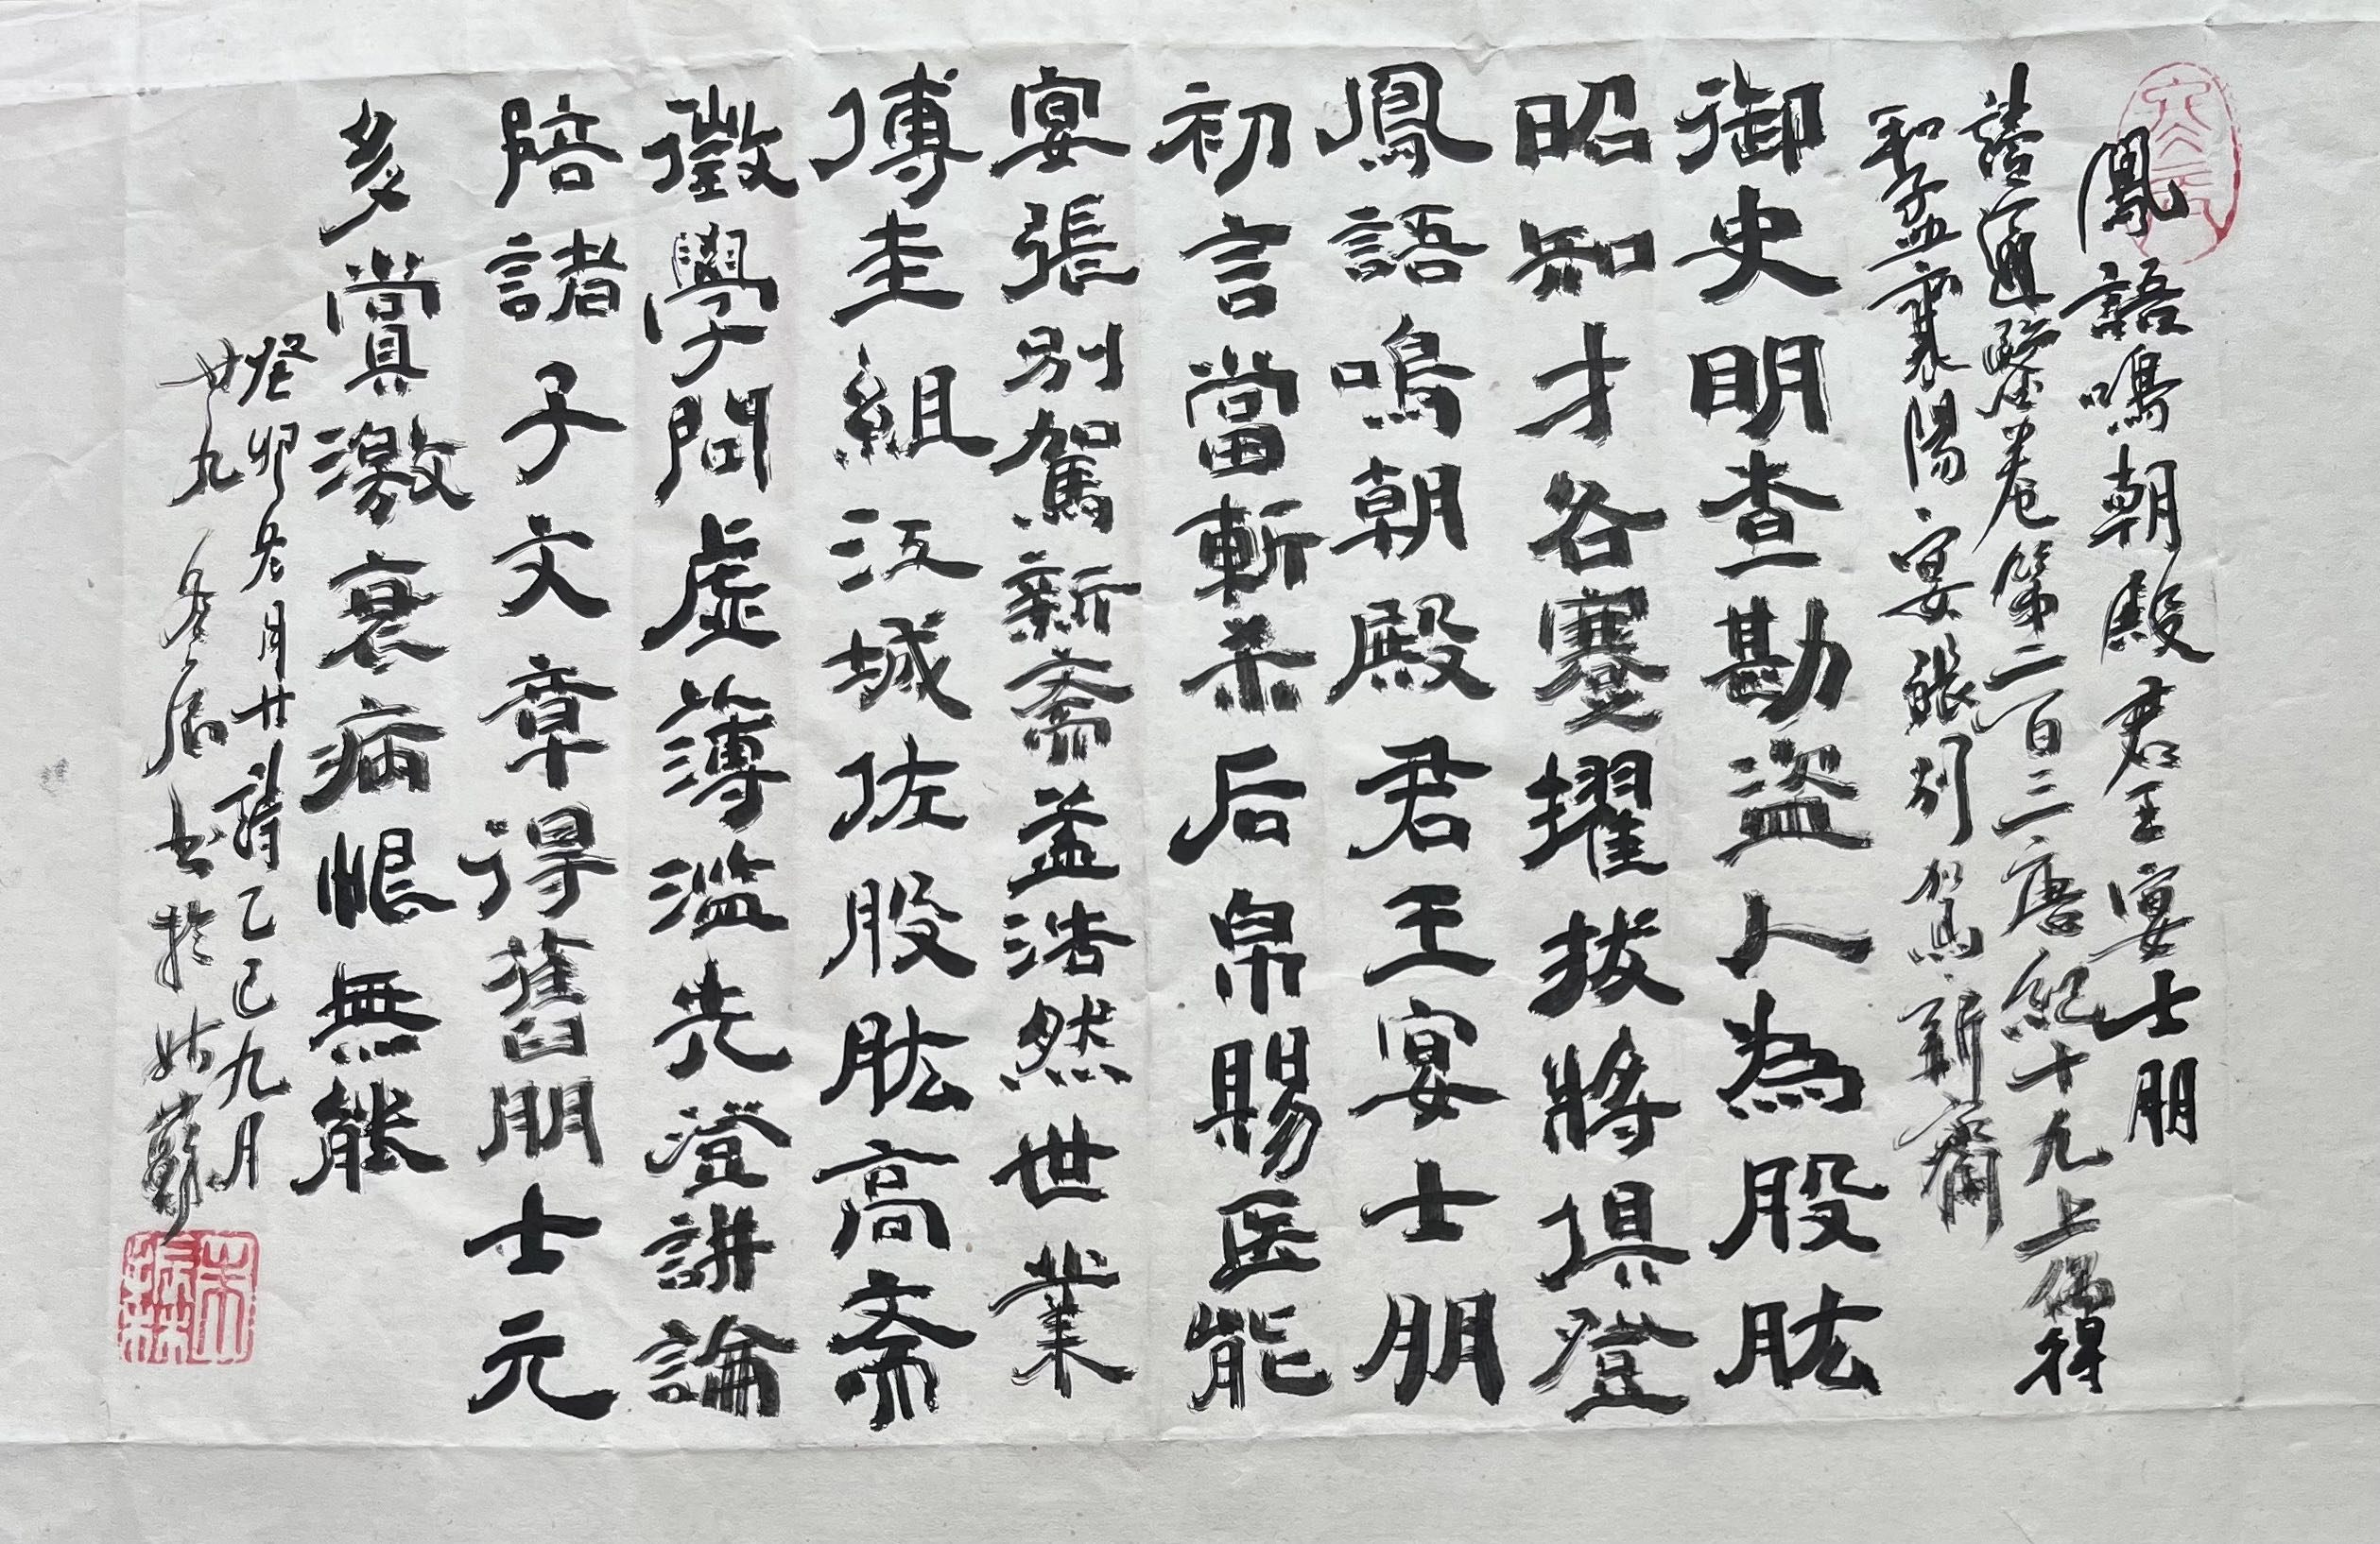 鳳語鳴朝殿君王宴士朋
讀通鑒卷第二百三唐紀十九上偶得
和孟襄陽宴張別駕新齋
御史明查勘盜人為股肱
昭知才各蹇擢拔將俱登
鳳語鳴朝殿君王宴士朋
初言當斬杀后帛賜医能
宴張別駕新斋益浩然世業
傳圭組江城佐股肱高斋
徵學問虛薄滥先澄講論
陪諸子文章得舊朋士元
多賞激衰病恨無能
癸卯冬月廿詩乙巳九月
廿九 居书於姑蘇